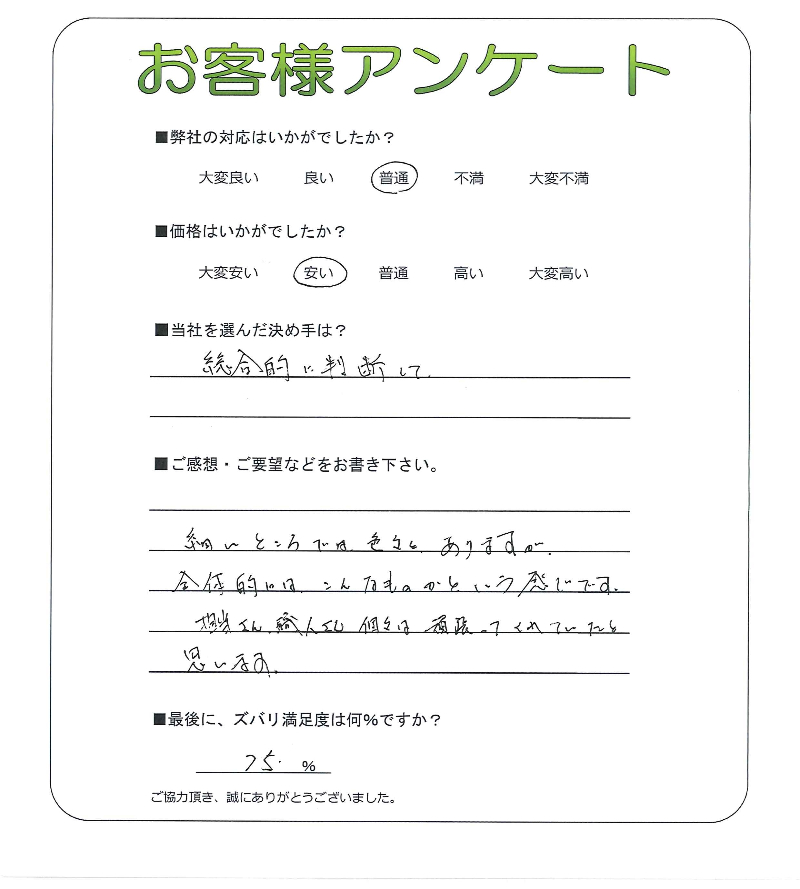 お客様アンケート
■弊社の対応はいかがでしたか？
大変良い 良い 普通 不満 大変不満
■価格はいかがでしたか？
大変安い 安い 普通 高い 大変高い
■当社を選んだ決め手は？
総合的に判断して.
■ご感想・ご要望などをお書き下さい。
細いところでは、色々とありますが、
全体的には、こんなものかという感じです。
担当さん、職人さん 個々は 頑張ってくれていたと
思います。
■最後に、ズバリ満足度は何％ですか？
75. ％
ご協力頂き、誠にありがとうございました。